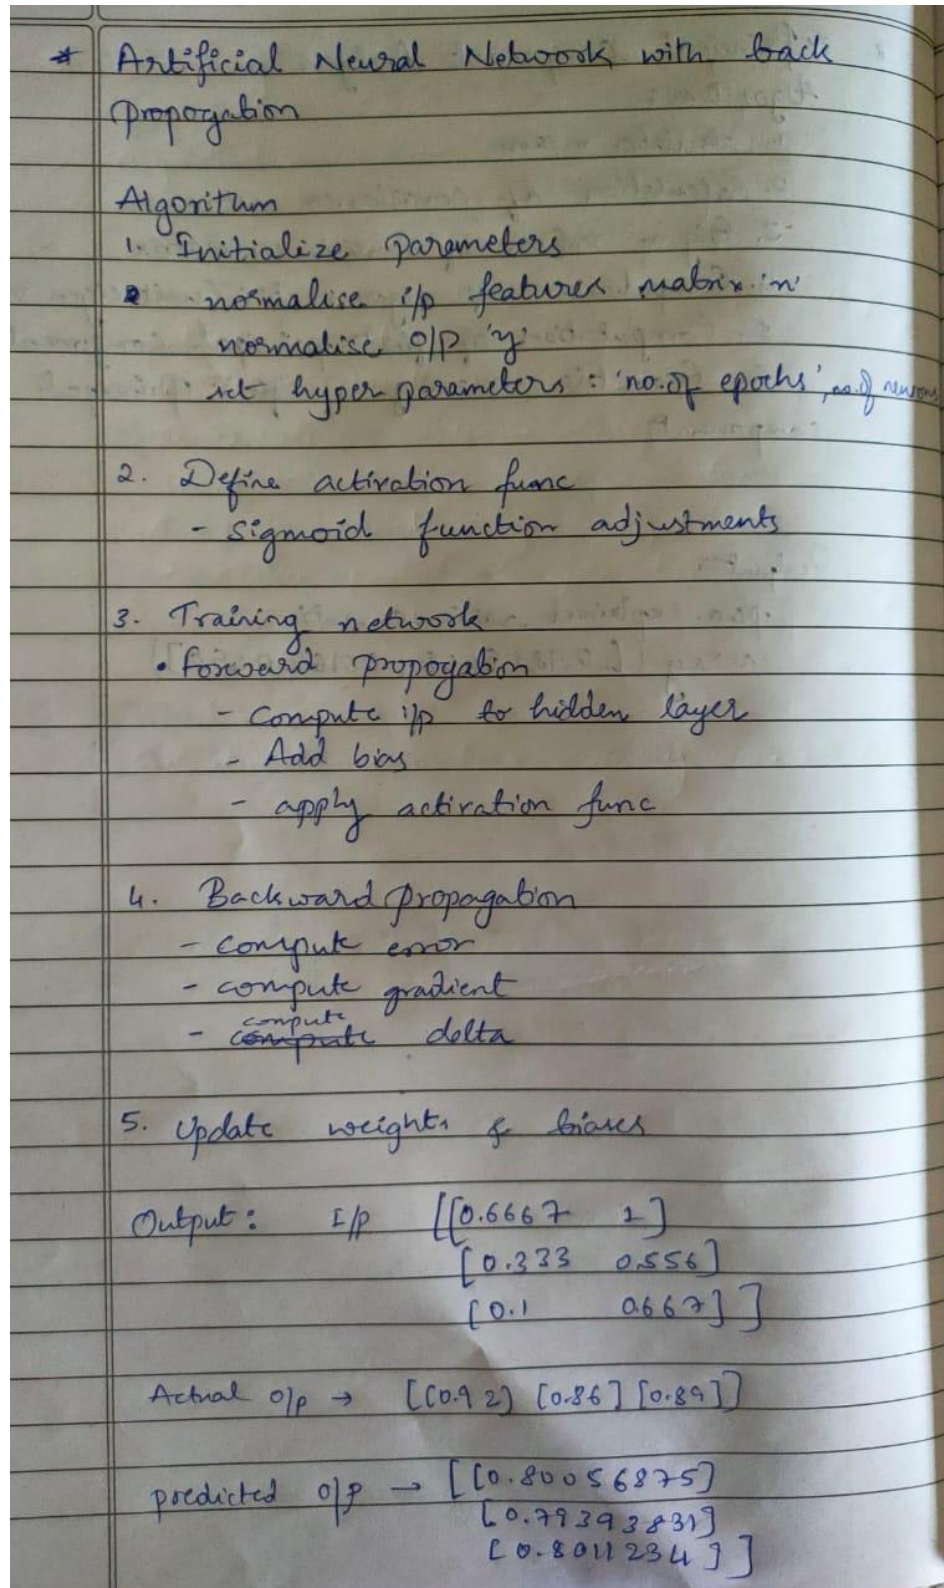 * Artificial Neural Network with back
propogation
Algorithm
1. Initialize parameters
normalise i/p features matrix 'n'
normalise o/p 'y'
set hyper parameters : 'no. of epochs', no. of neurons
2. Define activation func
- Sigmoid function adjustments
3. Training network
• forward propogation
- compute i/p to hidden layer
- Add bias
- apply activation func
4. Backward propagation
- compute error
- compute gradient
- compute delta
5. Update weights & biases
Output: I/p [[0.6667 1]
[0.333 0.556]
[0.1 0.667]]
Actual o/p → [[0.92] [0.86] [0.89]]
predicted o/p → [[0.80056875]
[0.79393831]
[0.8011234]]